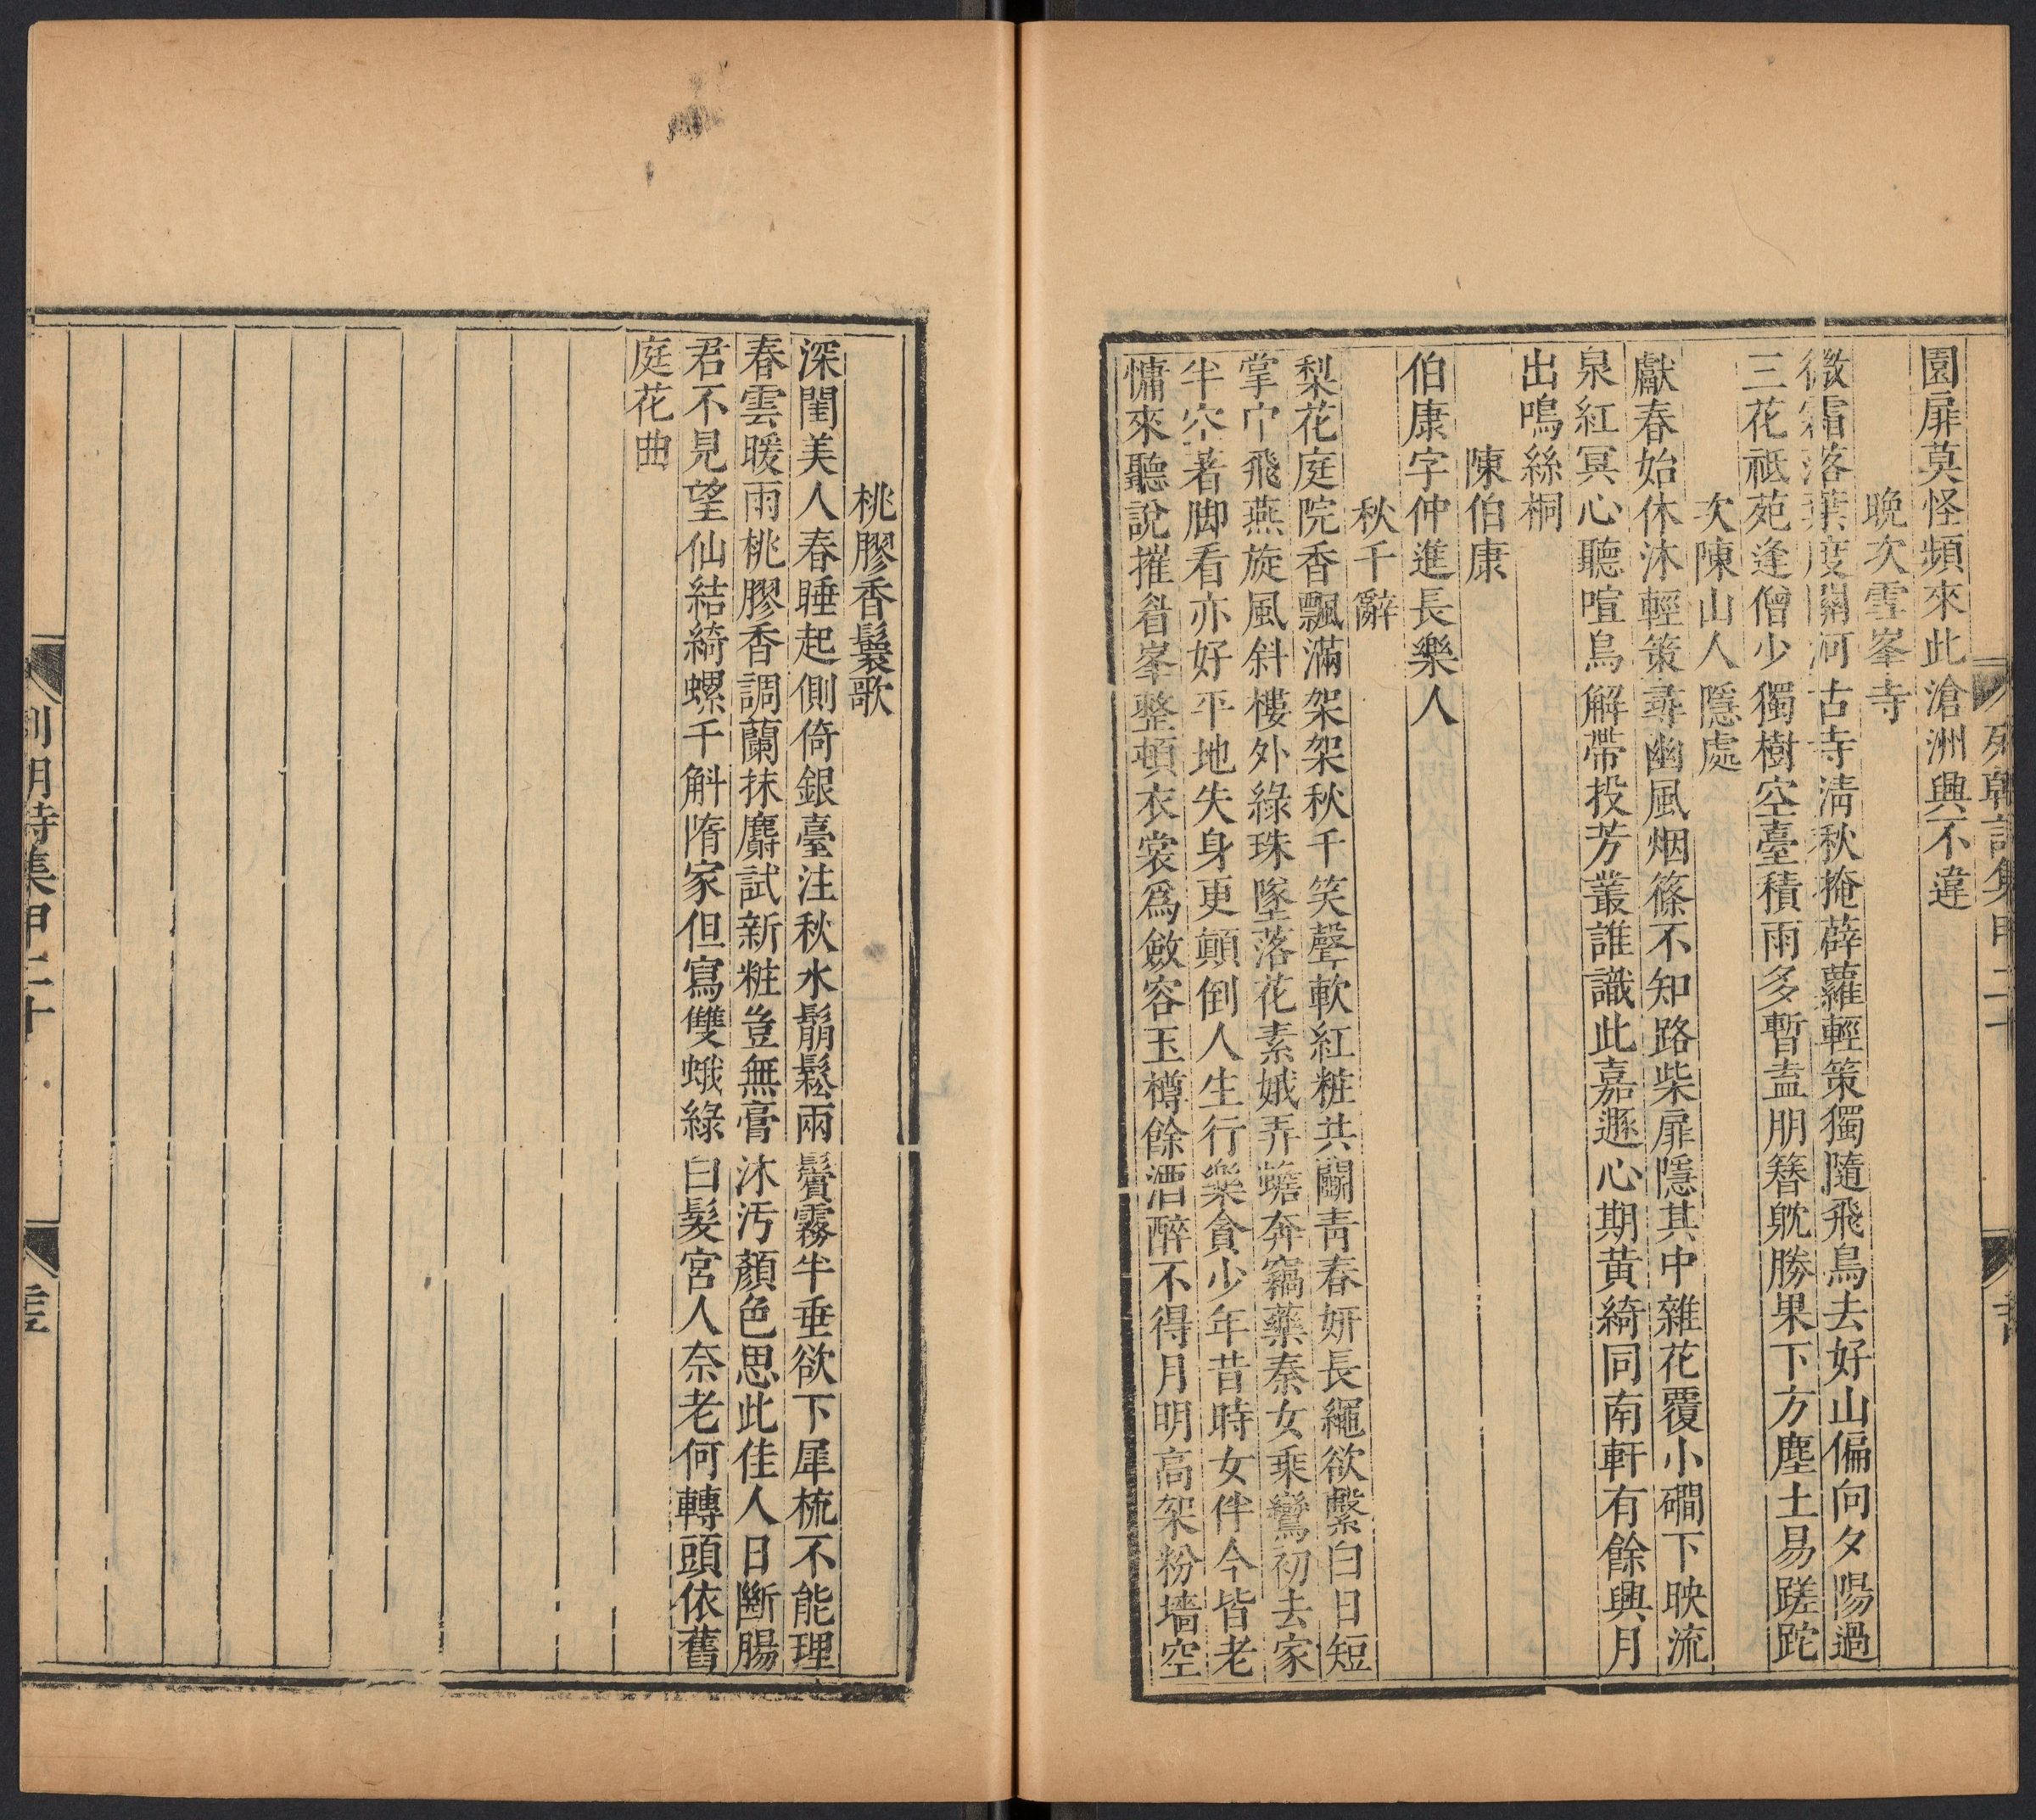 園扉莫怪頻來此滄洲興不違
晚次雪峯寺
微霜落葉度關河古寺淸秋掩薜蘿輕策獨隨飛鳥去好山偏向夕陽過
三花祗苑逢僧少獨樹空臺積雨多暫盍朋簪躭勝果下方塵土易蹉跎
次陳山人隱處
獻春始休沐輕策尋幽風烟篠不知路柴扉隱其中雜花覆小磵下映流
泉紅冥心聽喧鳥解帶投芳叢誰識此嘉遯心期黃綺同南軒有餘興月
出鳴絲桐
陳伯康
伯康字仲進長樂人
秋千辭
梨花庭院香飄滿架架秋千笑聲軟紅粧共鬭靑春姸長繩欲繫白日短
掌中飛燕旋風斜樓外綠珠墜落花素娥弄蟾奔竊藥秦女乘鸞初去家
半空著脚看亦好平地失身更顛倒人生行樂貪少年昔時女伴今皆老
慵來聽說摧眢峯整頓衣裳爲斂容玉樽餘酒醉不得月明高架粉墻空
列朝詩集甲二十
桃膠香鬟歌
深閨美人春睡起側倚銀臺注秋水鬅鬆兩鬢霧半垂欲下犀梳不能理
春雲暖雨桃膠香調蘭抹麝試新粧豈無膏沐汚顏色思此佳人日斷腸
君不見望仙結綺螺千斛隋家但寫雙蛾綠白髮宮人奈老何轉頭依舊
庭花曲
列朝詩集甲二十